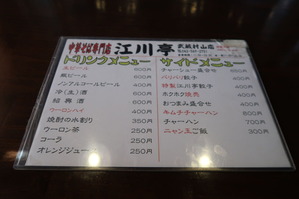 中華そば専門店 江川亭 武蔵村山店
ドリンクメニュー
生ビール 500円
瓶ビール 600円
ノンアルコールビール 400円
冷(生)酒 600円
紹興酒 600円
ウーロンハイ 400円
焼酎の水割り 350円
ウーロン茶 250円
コーラ 250円
オレンジジュース 250円
サイドメニュー
チャーシュー盛合せ
パリパリ餃子 400円
特製江川亭餃子 400円
ホクホク焼売 400円
おつまみ盛合せ 400円
キムチチャーハン 800円
チャーハン 700円
ニャン玉ご飯 300円